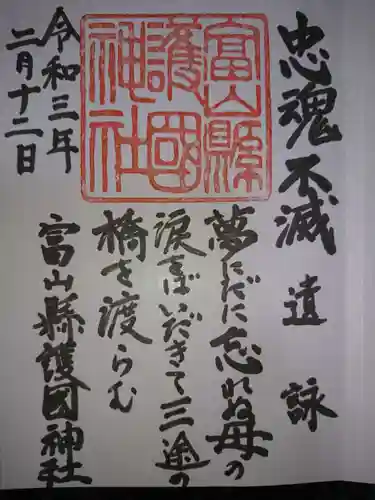 忠魂不滅
遺詠
夢にだに忘れぬ母の
涙をばいだきて三途の
橋を渡らむ
富山縣護國神社
富山縣護国神社
令和三年
二月十二日